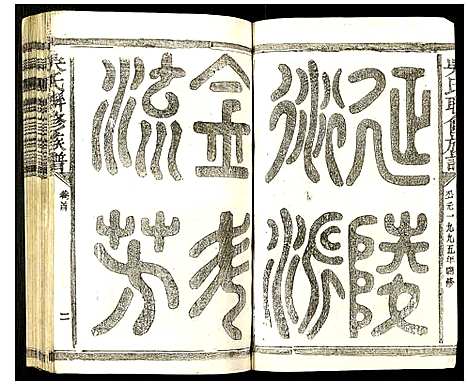 吳氏聯修族譜
公元一九九五年聯修
延陵
衍派
金
流芳
吳氏聯修族譜
卷首
二